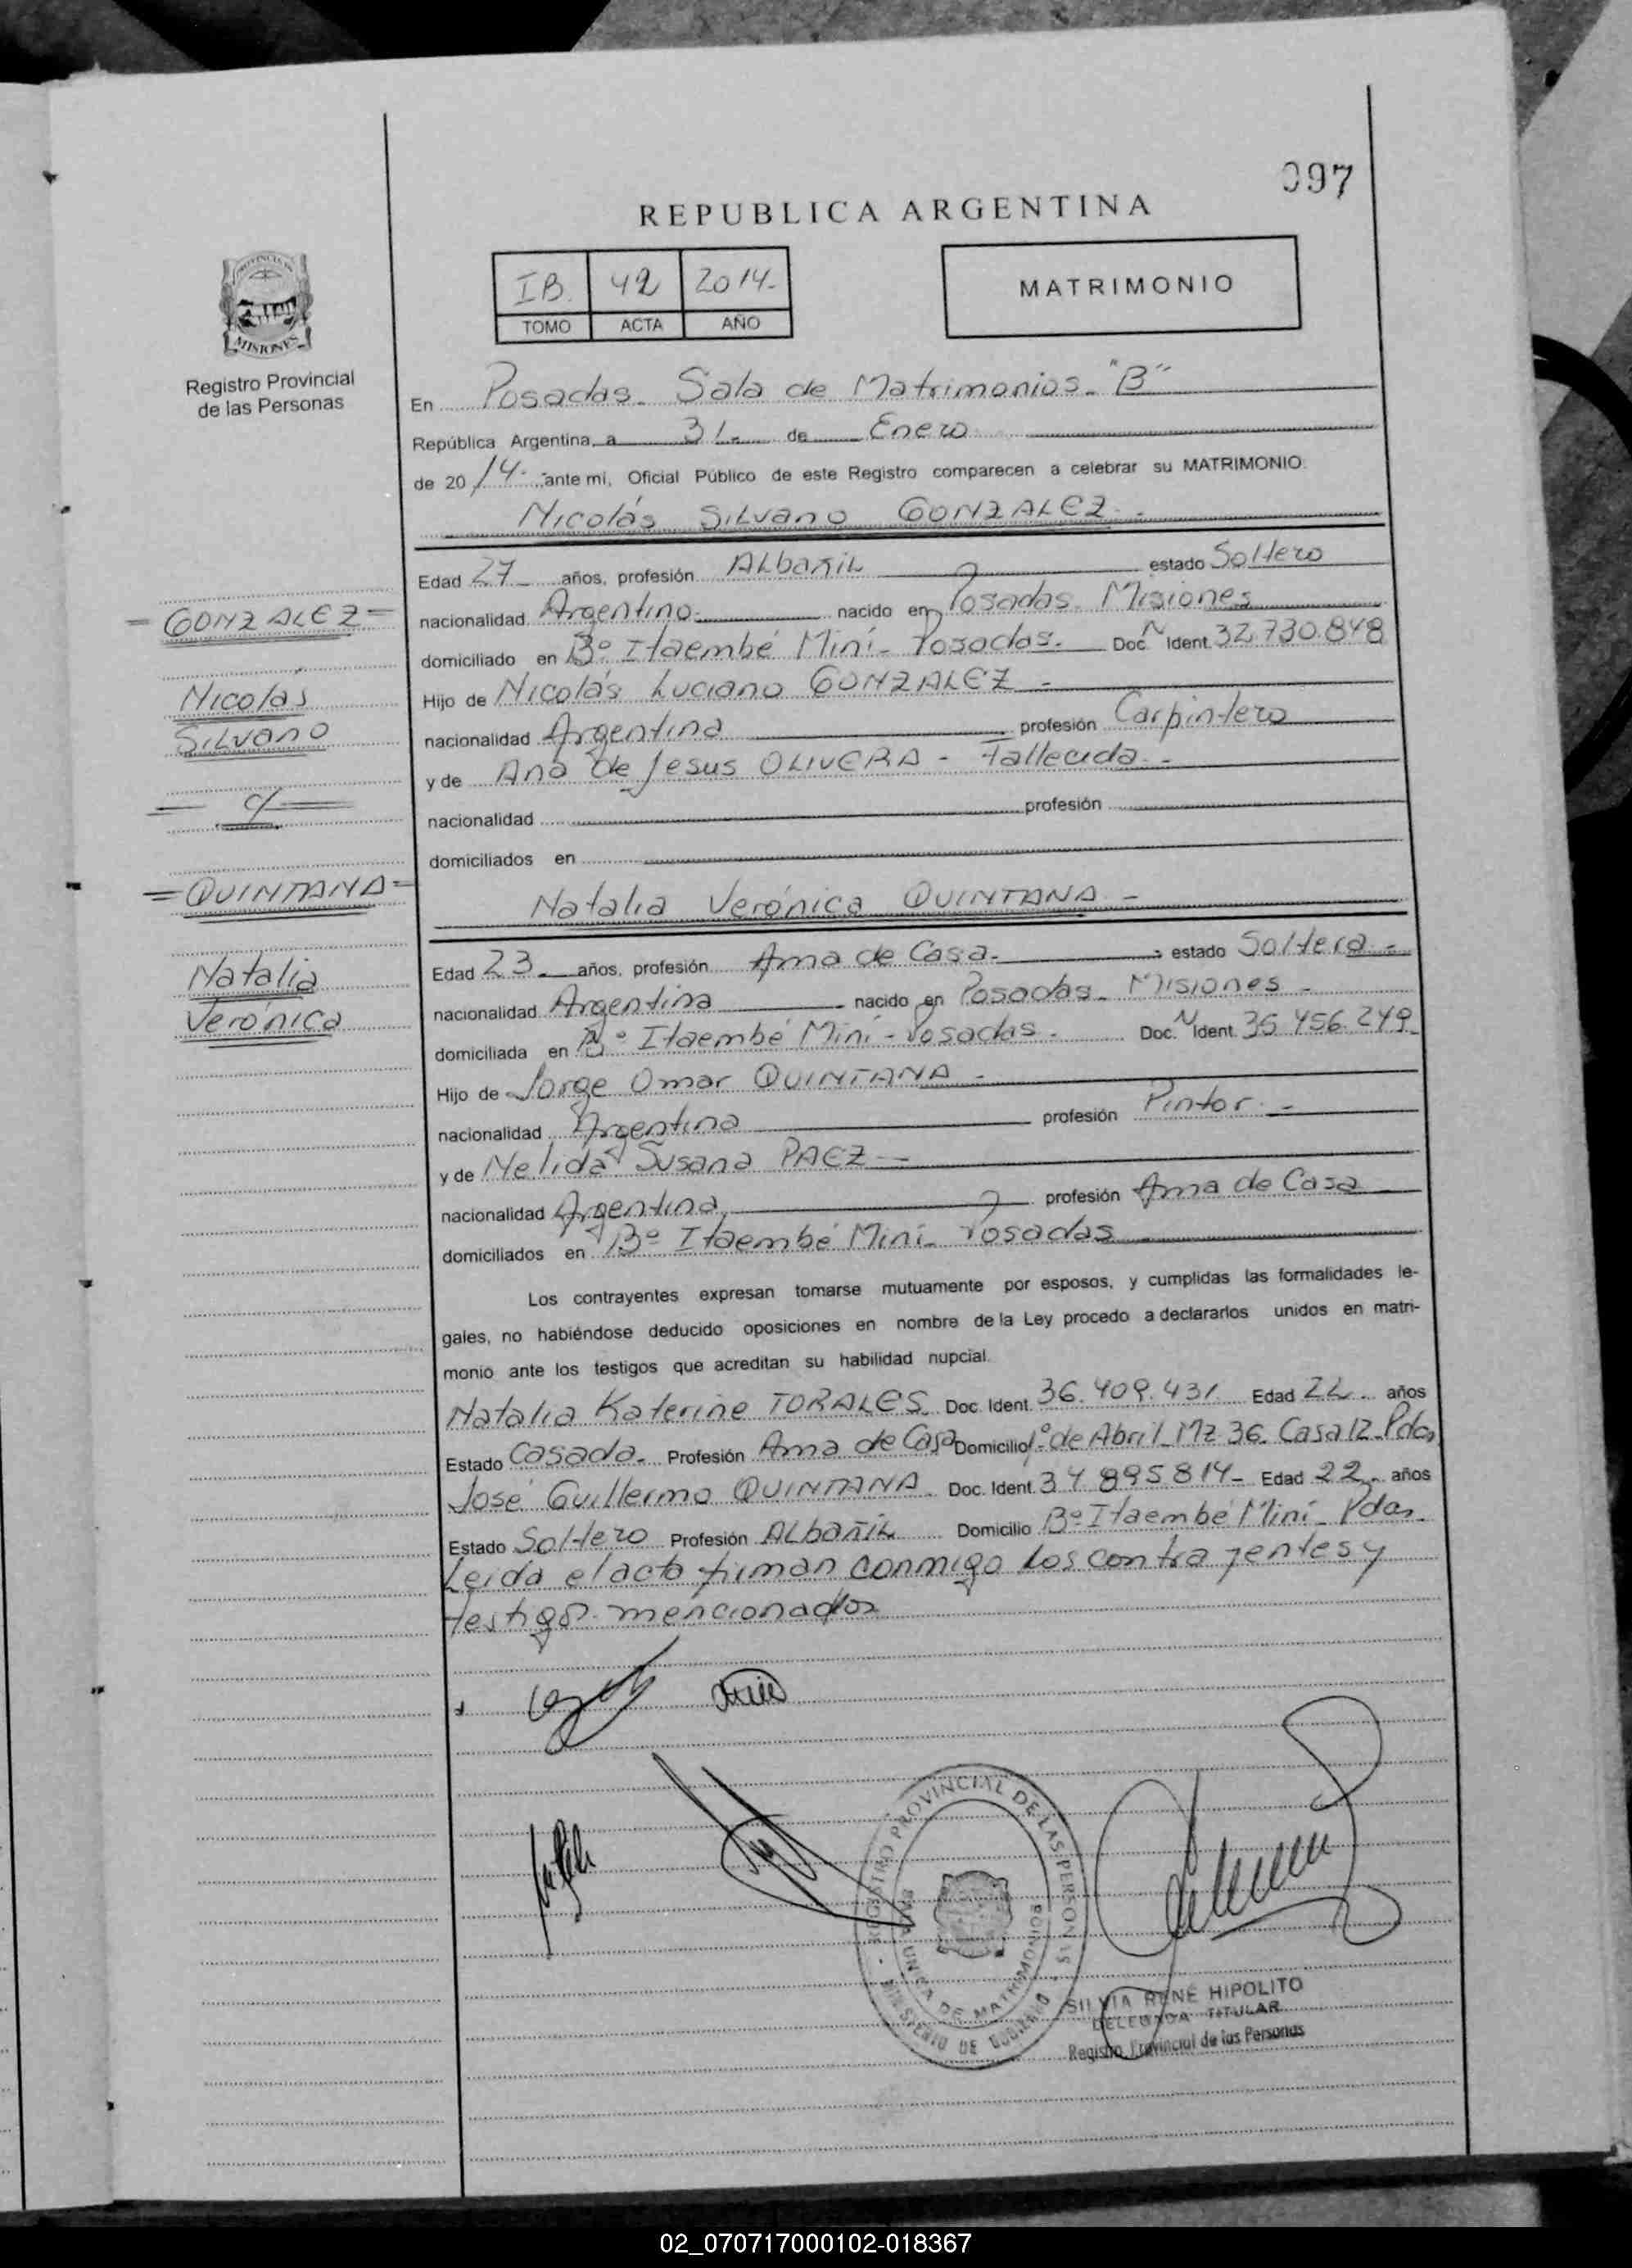 097
REPUBLICA ARGENTINA
IB. 42 2014.-
TOMO ACTA AÑO
MATRIMONIO
PROVINCIA DE
MISIONES
Registro Provincial
de las Personas
En Posadas. Sala de Matrimonios.- "B"
República Argentina, a 31.- de Enero
de 20 14.- ante mi, Oficial Público de este Registro comparecen a celebrar su MATRIMONIO:
Nicolás Silvano GONZALEZ.-
Edad 27 años, profesión Albañil estado Soltero
nacionalidad Argentino. nacido en Posadas. Misiones
domiciliado en Bº Itaembé Miní - Posadas. Doc. N Ident. 32.730.848
Hijo de Nicolás Luciano GONZALEZ -
nacionalidad Argentina profesión Carpintero
y de Ana de Jesus OLIVERA - Fallecida.-
nacionalidad profesión
domiciliados en
Natalia Verónica QUINTANA -
Edad 23 años, profesión Ama de Casa. estado Soltera.-
nacionalidad Argentina nacido en Posadas. Misiones -
domiciliada en Bº Itaembé Miní - Posadas. Doc. N Ident. 35 456.249
Hijo de Jorge Omar QUINTANA -
nacionalidad Argentina profesión Pintor.-
y de Nelida Susana PAEZ -
nacionalidad Argentina profesión Ama de Casa
domiciliados en Bº Itaembé Miní - Posadas
Los contrayentes expresan tomarse mutuamente por esposos, y cumplidas las formalidades le-
gales, no habiéndose deducido oposiciones en nombre de la Ley procedo a declararlos unidos en matri-
monio ante los testigos que acreditan su habilidad nupcial.
Natalia Katerine TORALES. Doc. Ident. 36.409.431 Edad 22 años
Estado Casada. Profesión Ama de Casa Domicilio 1º de Abril Mz 36. Casa 12. Pdas
José Guillermo QUINTANA. Doc. Ident. 34 895 814- Edad 22. años
Estado Soltero Profesión Albañil Domicilio Bº Itaembé Miní - Pdas.
Leida el acta firman conmigo los contrayentes y
testigos mencionados
= GONZALEZ =
Nicolás
Silvano
= c/ =
= QUINTANA =
Natalia
Verónica
REGISTRO PROVINCIAL DE LAS PERSONAS
MINISTERIO DE GOBIERNO
UNICA DE MATRIMONIOS
SILVIA RENÉ HIPOLITO
DELEGADA TITULAR
Registro Provincial de las Personas
02_070717000102-018367